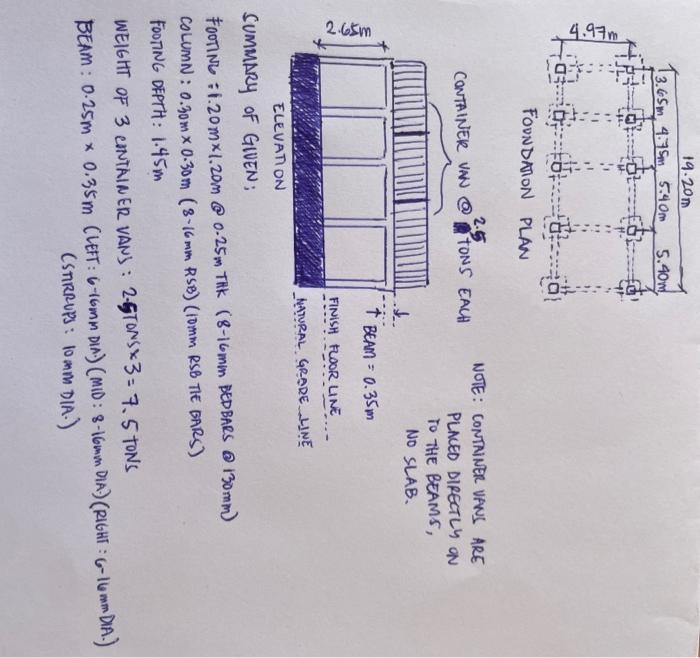 19.20m
3.65m 4.75m 5.40m 5.40m
4.97m
FOUNDATION PLAN
CONTAINER VAN @ 2.5 TONS EACH
NOTE: CONTAINER VANS ARE
PLACED DIRECTLY ON
TO THE BEAMS,
NO SLAB.
2.65m
BEAM = 0.35m
FINISH FLOOR LINE
NATURAL GRADE LINE
ELEVATION
SUMMARY OF GIVEN:
FOOTING = 1.20m x 1.20m @ 0.25m THK (8-16mm BEDBARS @ 130mm)
COLUMN: 0.30m x 0.30m (8-16mm RSB) (10mm RSB TIE BARS)
FOOTING DEPTH: 1.45m
WEIGHT OF 3 CONTAINER VANS: 2.5 TONS x 3 = 7.5 TONS
BEAM: 0.25m x 0.35m (LEFT: 6-16mm DIA) (MID: 8-16mm DIA) (RIGHT: 6-16mm DIA.)
(STIRRUPS: 10mm DIA.)